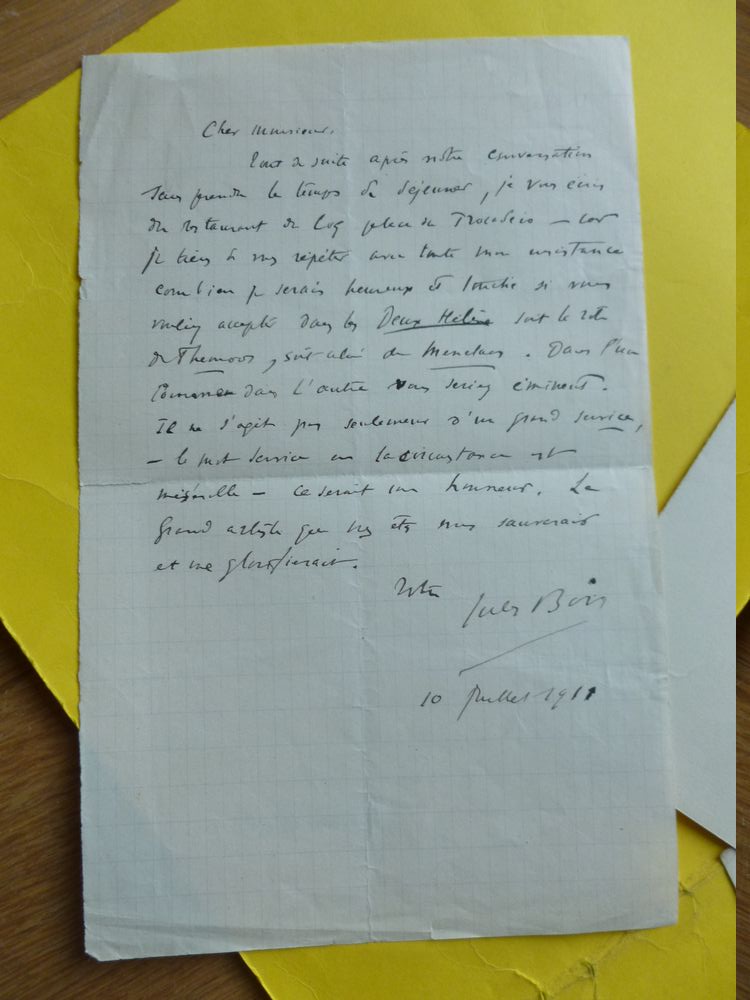 Cher Monsieur,
Tout de suite après notre conversation
sans prendre le temps de déjeuner, je vous écris
du restaurant du Coq place du Trocadéro — car
je tiens à vous répéter avec toute mon insistance
combien je serais heureux et touché si vous
vouliez accepter dans les Deux Hélène soit le rôle
de Themoos, soit celui de Menelaos. Dans l'un
comme dans l'autre vous seriez éminent.
Il ne s'agit pas seulement d'un grand service,
— le mot service en la circonstance est
— ce serait un honneur. Le
grand artiste que vous êtes nous sauverait
et me glorifierait.
Votre
Jules Bois
10 Juillet 1911